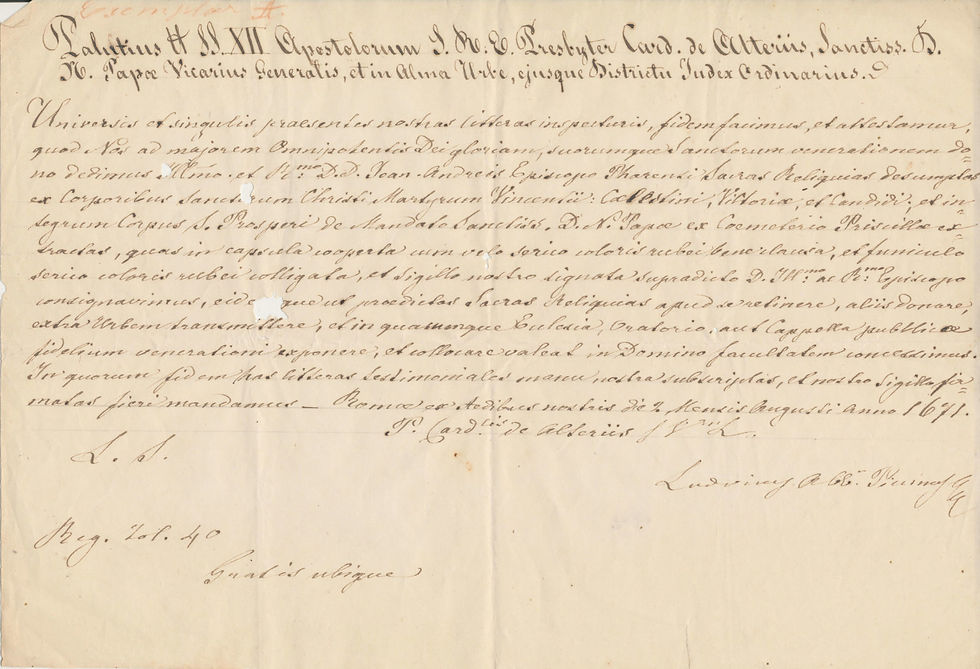 Exemplar II.
Palutius tt SS. XII Apostolorum S. R. E. Presbyter Card. de Alteriis, Sanctiss. D.
N. Papæ Vicarius Generalis, et in Alma Urbe, ejusque Districtu Judex Ordinarius.
Universis et singulis praesentes nostras litteras inspecturis, fidem facimus, et attestamur,
quod Nos ad majorem Omnipotentis Dei gloriam, suorumque Sanctorum venerationem do=
no dedimus Illmo. et R.mo D.D. Jean Andreis Episcopo Pharensi Sacras Reliquias desumptas
ex Corporibus Sanctorum Christi Martyrum Vincentii: Cælestini, Victoriæ, et Candidi, et in=
tegrum Corpus S. Prosperi de Mandato Sanctiss. D. N. Papæ ex Coemeterio Priscillæ ex=
tractas, quas in capsula cooperta cum velo serico coloris rubei bene clausa, et funiculo
serico coloris rubei colligata, et sigillo nostro signata supradicto D. Ill.mo ac R.mo Episcopo
consignavimus, eidemque ut prædictas Sacras Reliquias apud se retinere, aliis donare,
extra Urbem transmittere, et in quacumque Eclesia, Oratorio, aut Cappella pubblicæ
fidelium venerationi exponere, et collocare valeat in Domino facultatem concessimus.
In quorum fidem has litteras testimoniales manu nostra subscriptas, et nostro Sigillo fir=
matas fieri mandamus _ Romæ ex Aedibus nostris die 2 Mensis Augusti Anno 1671.
P. Card.lis de Alteriis
L. S.
Reg. fol. 40
Gratis ubique